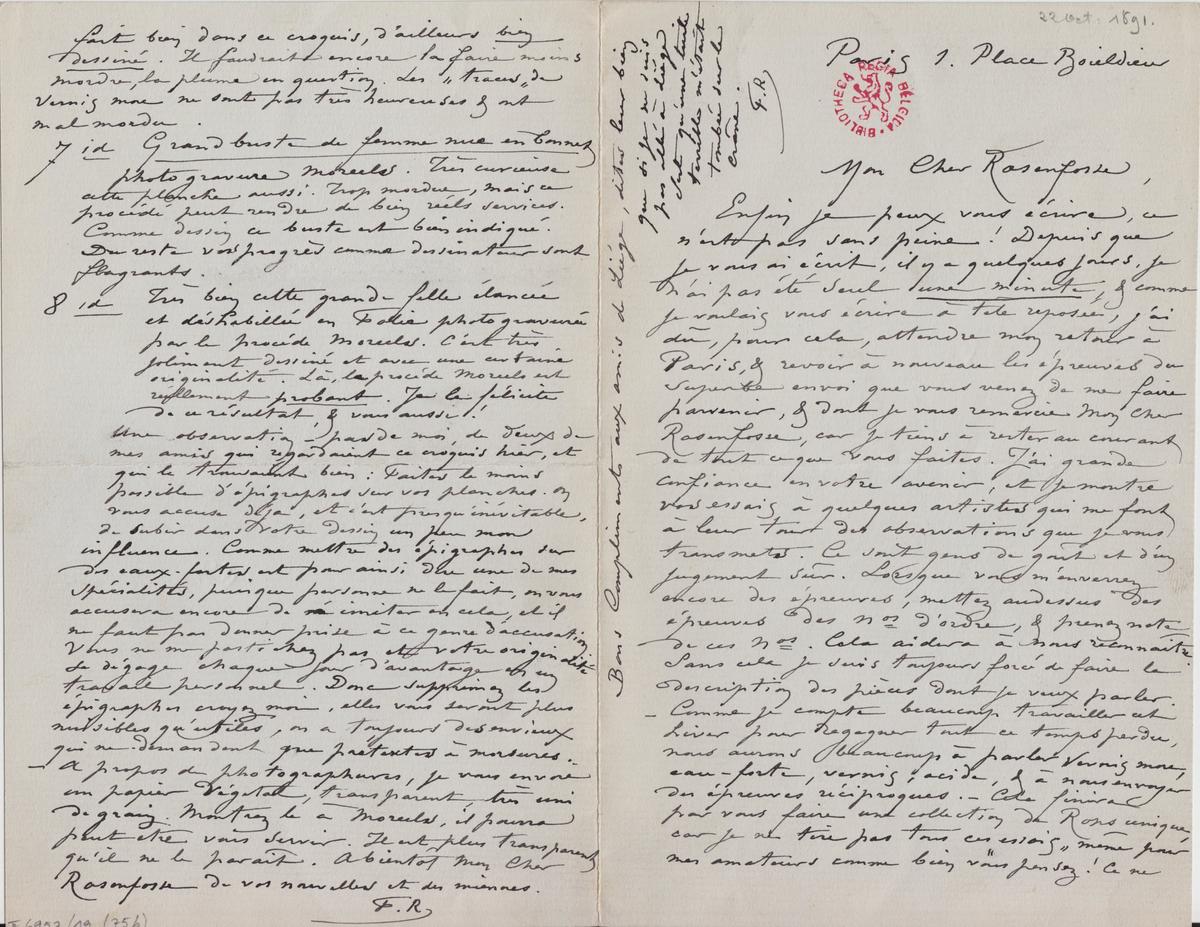 22 Oct. 1891.
Paris 1. Place Boieldieu
BIBLIOTHECA REGIA BELGICA
Mon Cher Rasenfosse,
Enfin je peux vous écrire, ce
n'est pas sans peine ! Depuis que
je vous ai écrit, il y a quelques jours, je
n'ai pas été seul une minute, & comme
je voulais vous écrire à tête reposée, j'ai
dû, pour cela, attendre mon retour à
Paris, & revoir à nouveau les épreuves du
superbe envoi que vous venez de me faire
parvenir, & dont je vous remercie Mon Cher
Rasenfosse, car je tiens à rester au courant
de tout ce que vous faites. J'ai grande
confiance en votre avenir, et je montre
vos essais à quelques artistes qui me font
à leur tour des observations que je vous
transmets. Ce sont gens de goût et d'un
jugement sûr. Lorsque vous m'enverrez
encore des épreuves, mettez audessus des
épreuves des Nos d'ordre, & prenez note
de ces Nos. Cela aidera à nous reconnaître.
Sans cela je suis toujours forcé de faire la
description des pièces dont je veux parler.
– Comme je compte beaucoup travailler cet
hiver pour regagner tout ce temps perdu,
nous aurons beaucoup à parler vernis mou,
eau-forte, vernis, acide, & à nous envoyer
des épreuves réciproques. – Cela finira
par vous faire une collection de Rops unique
car je ne tire pas tous ces essais, même pour
mes amateurs comme bien vous pensez ! Ce ne
fait bien dans ce croquis, d'ailleurs bien
dessiné. Il faudrait encore la faire moins
mordre, la plume en question. Les „traces„ de
vernis mou ne sont pas très heureuses & ont
mal mordu.
7 id Grand buste de femme nue en bonnet
photogravure Moreels. Très curieuse
cette planche aussi. Trop mordue, mais ce
procédé peut rendre de bien réels services.
Comme dessin ce buste est bien indiqué.
Du reste vos progrès comme dessinateur sont
flagrants.
8 id Très bien cette grande fille élancée
et déshabillée en Folie photogravurée
par le procédé Moreels. C'est très
joliment dessiné et avec une certaine
originalité. Là, le procédé Moreels est
réellement probant. Je le félicite
de ce résultat, & vous aussi !
Une observation – pas de moi, de deux de
mes amis qui regardaient ce croquis hier, et
qui le trouvaient bien : Faites le moins
possible d'épigraphes sur vos planches. On
vous accuse déjà, et c'est presqu'inévitable,
de subir dans votre dessin un peu mon
influence. Comme mettre des épigraphes sur
des eaux-fortes est pour ainsi dire une de mes
spécialités, puisque personne ne le fait, on vous
accusera encore de m'imiter en cela, et il
ne faut pas donner prise à ce genre d'accusation.
Vous ne me pastichez pas et votre originalité
se dégage chaque jour d'avantage en un
travail personnel. Donc supprimez les
épigraphes croyez moi, elles vous seront plus
nuisibles qu'utiles, on a toujours des envieux
qui ne demandent que prétextes à morsures. –
– A propos de photogravures, je vous envoie
un papier végétal, transparent, très uni
de grain. Montrez le à Moreels, il pourra
peut être vous servir. Il est plus transparent
qu'il ne le parait. A bientot Mon Cher
Rasenfosse de vos nouvelles et des miennes.
F.R.
Bons Compliments aux amis de Liége, dites leur bien
que si je ne suis
pas allé à Liége
c'est qu'une tuile
m'était
tombée sur le
crâne.
F.R